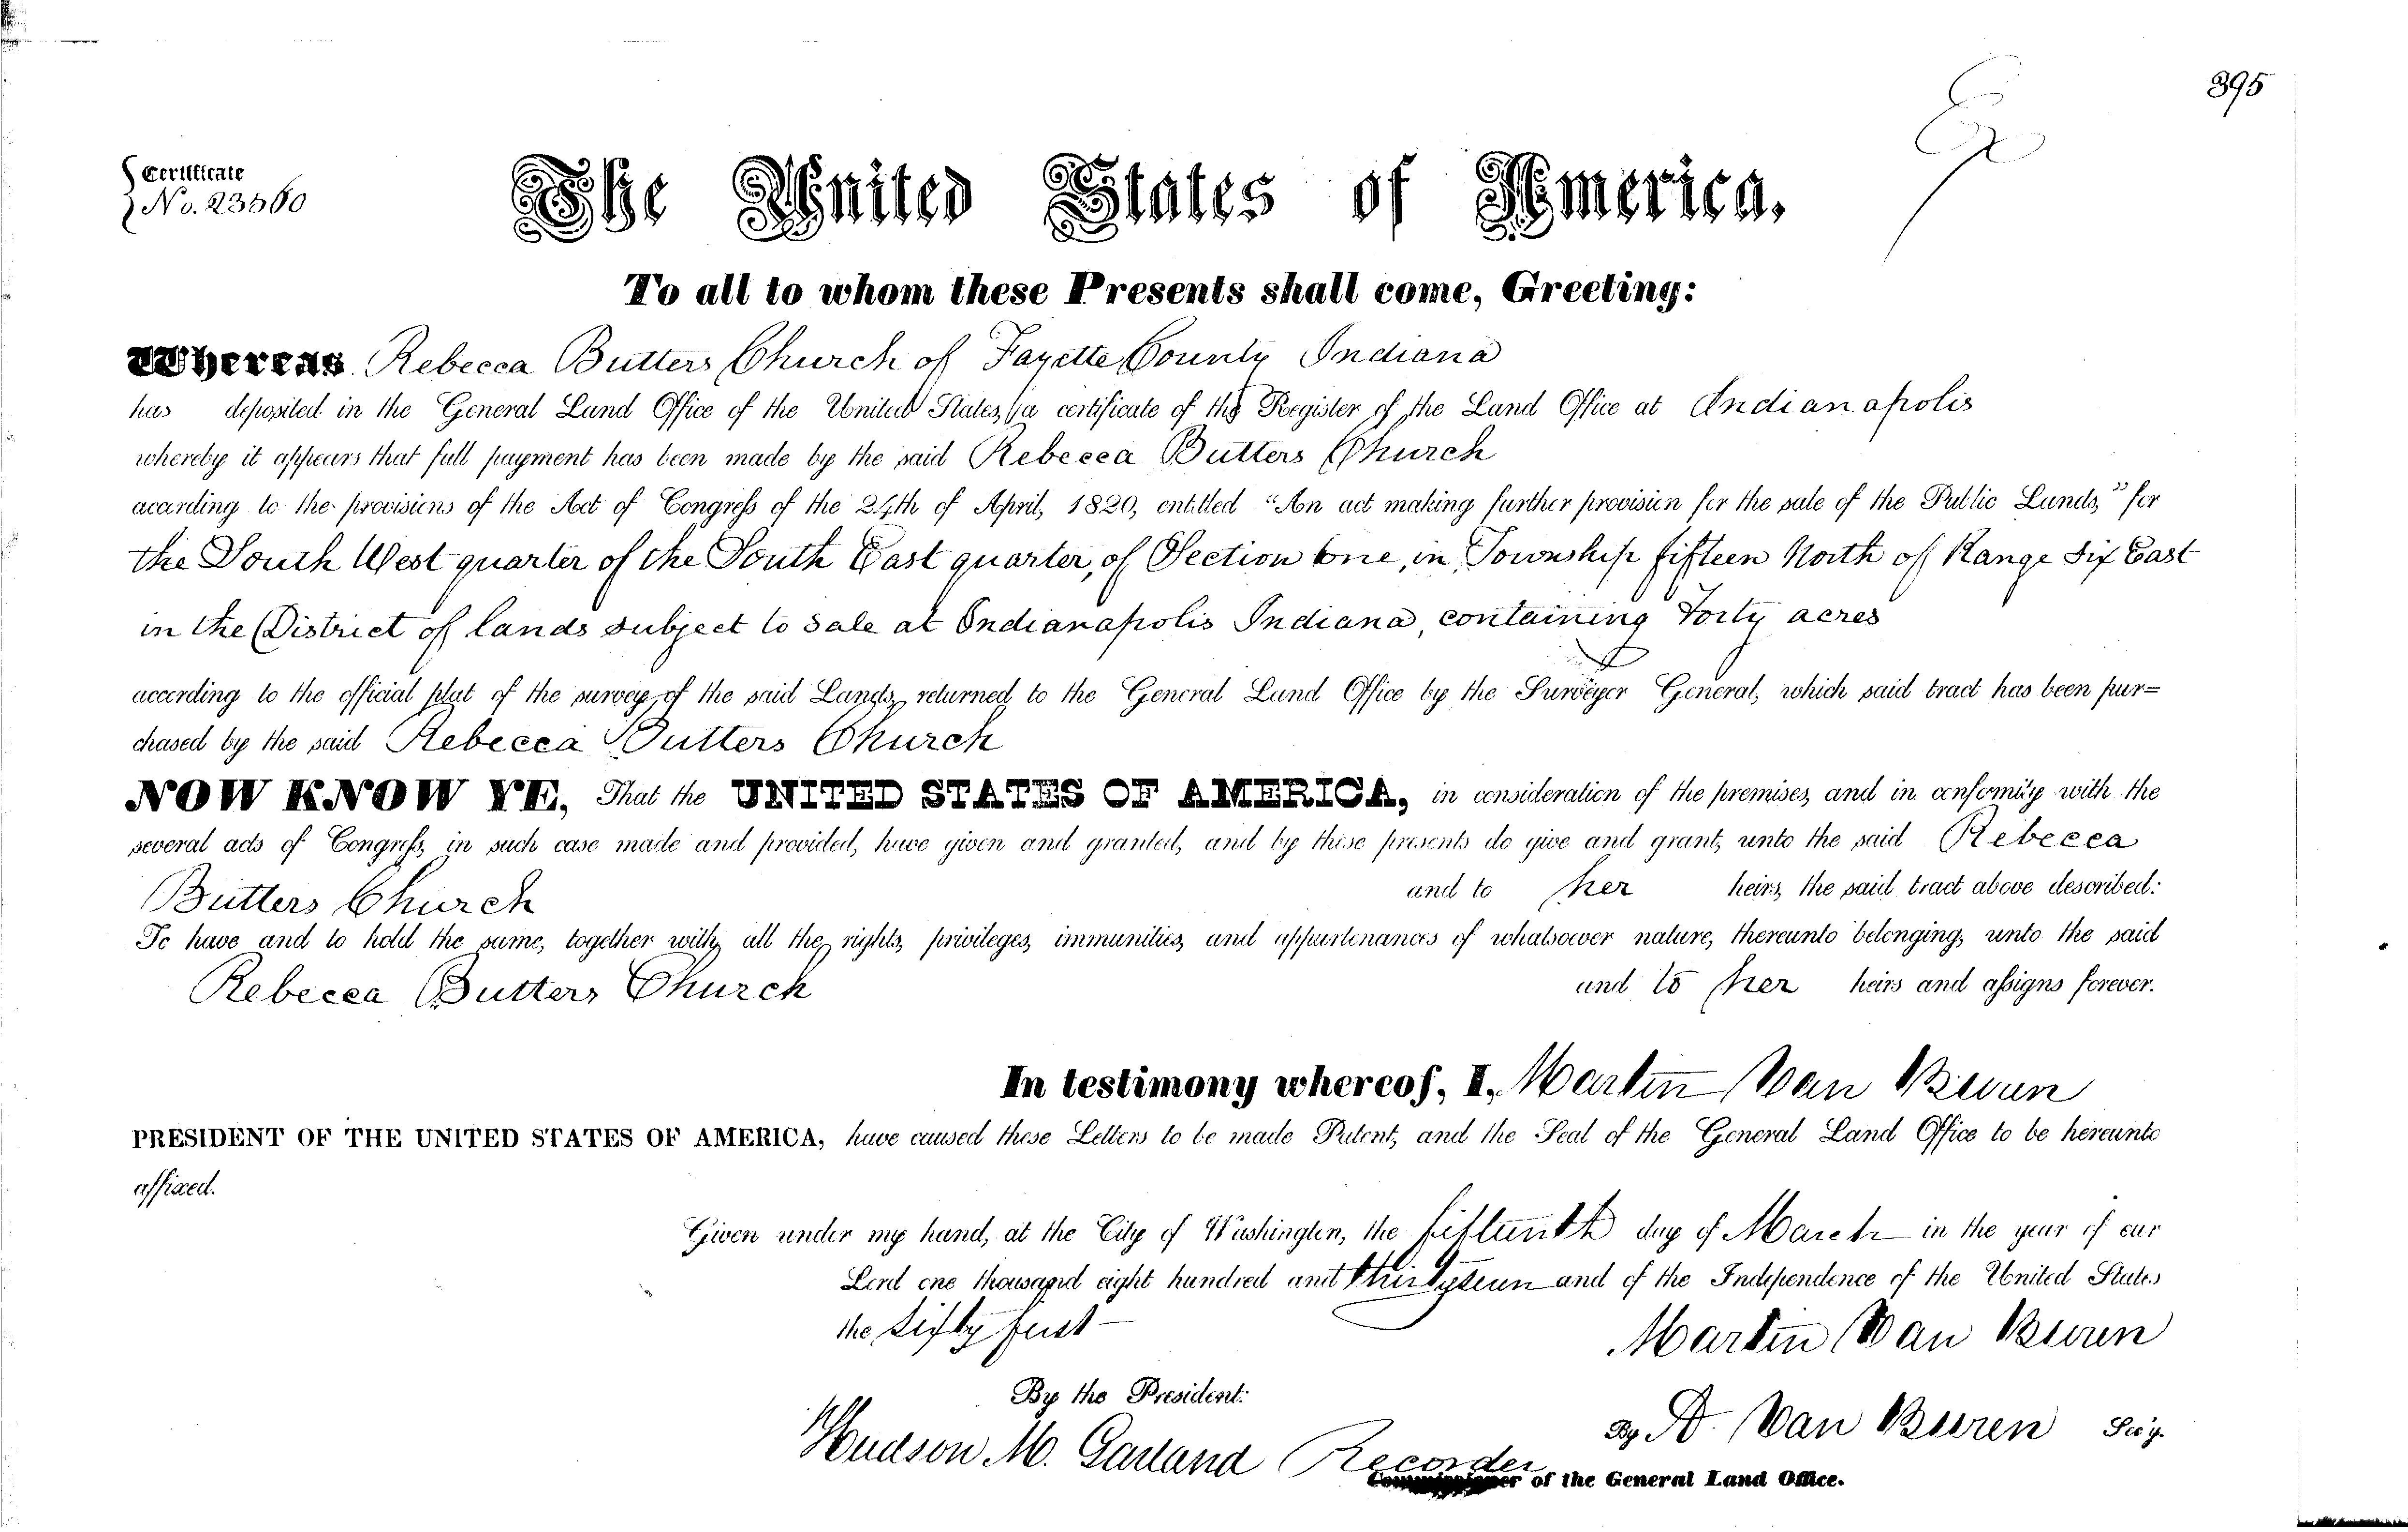 395
Certificate
No. 23560
The United States of America,
To all to whom these Presents shall come, Greeting:
Whereas Rebecca Butters Church of Fayette County Indiana
has deposited in the General Land Office of the United States, a certificate of the Register of the Land Office at Indianapolis
whereby it appears that full payment has been made by the said Rebecca Butters Church
according to the provisions of the Act of Congress of the 24th of April, 1820, entitled "An act making further provision for the sale of the Public Lands," for
the South West quarter of the South East quarter, of Section one, in Township fifteen North of Range Six East
in the District of lands subject to sale at Indianapolis Indiana, containing Forty acres
according to the official plat of the survey of the said Lands, returned to the General Land Office by the Surveyor General, which said tract has been pur=
chased by the said Rebecca Butters Church
NOW KNOW YE, That the UNITED STATES OF AMERICA, in consideration of the premises, and in conformity with the
several acts of Congress, in such case made and provided, have given and granted, and by these presents do give and grant, unto the said Rebecca
Butters Church and to her heirs, the said tract above described:
To have and to hold the same, together with all the rights, privileges, immunities, and appurtenances of whatsoever nature, thereunto belonging, unto the said
Rebecca Butters Church and to her heirs and assigns forever.
In testimony whereof, I, Martin Van Buren
PRESIDENT OF THE UNITED STATES OF AMERICA, have caused these Letters to be made Patent, and the Seal of the General Land Office to be hereunto
affixed.
Given under my hand, at the City of Washington, the fifteenth day of March in the year of our
Lord one thousand eight hundred and thirtyseven and of the Independence of the United States
the Sixty first
Martin Van Buren
By the President:
By A. Van Buren Sec'y.
Hudson M. Garland Recorder
of the General Land Office.